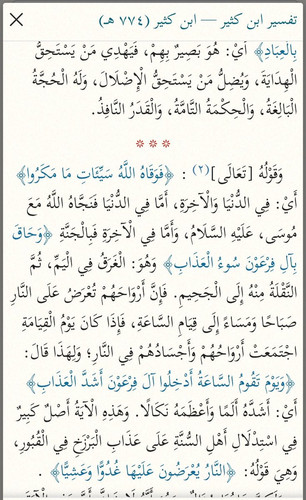 تفسير ابن كثير — ابن كثير (٧٧٤ هـ)
بِالْعِبَادِ﴾ أَيْ: هُوَ بَصِيرٌ بِهِمْ، فَيَهْدِي مَنْ يَسْتَحِقُّ
الْهِدَايَةَ، وَيُضِلُّ مَنْ يَسْتَحِقُّ الْإِضْلَالَ، وَلَهُ الْحُجَّةُ
الْبَالِغَةُ، وَالْحِكْمَةُ التَّامَّةُ، وَالْقَدَرُ النَّافِذُ.
* * *
وَقَوْلُهُ [تَعَالَى]⁽٢⁾ : ﴿فَوَقَاهُ اللَّهُ سَيِّئَاتِ مَا مَكَرُوا﴾
أَيْ: فِي الدُّنْيَا وَالْآخِرَةِ، أَمَّا فِي الدُّنْيَا فَنَجَّاهُ اللَّهُ مَعَ
مُوسَى، عَلَيْهِ السَّلَامُ، وَأَمَّا فِي الْآخِرَةِ فَبِالْجَنَّةِ ﴿وَحَاقَ
بِآلِ فِرْعَوْنَ سُوءُ الْعَذَابِ﴾ وَهُوَ: الْغَرَقُ فِي الْيَمِّ، ثُمَّ
النَّقْلَةُ مِنْهُ إِلَى الْجَحِيمِ. فَإِنَّ أَرْوَاحَهُمْ تُعْرَضُ عَلَى النَّارِ
صَبَاحًا وَمَسَاءً إِلَى قِيَامِ السَّاعَةِ، فَإِذَا كَانَ يَوْمُ الْقِيَامَةِ
اجْتَمَعَتْ أَرْوَاحُهُمْ وَأَجْسَادُهُمْ فِي النَّارِ؛ وَلِهَذَا قَالَ:
﴿وَيَوْمَ تَقُومُ السَّاعَةُ أَدْخِلُوا آلَ فِرْعَوْنَ أَشَدَّ الْعَذَابِ﴾
أَيْ: أَشَدُّهُ أَلَمًا وَأَعْظَمُهُ نَكَالًا. وَهَذِهِ الْآيَةُ أَصْلٌ كَبِيرٌ
فِي اسْتِدْلَالِ أَهْلِ السُّنَّةِ عَلَى عَذَابِ الْبَرْزَخِ فِي الْقُبُورِ،
وَهِيَ قَوْلُهُ: ﴿النَّارُ يُعْرَضُونَ عَلَيْهَا غُدُوًّا وَعَشِيًّا﴾ .